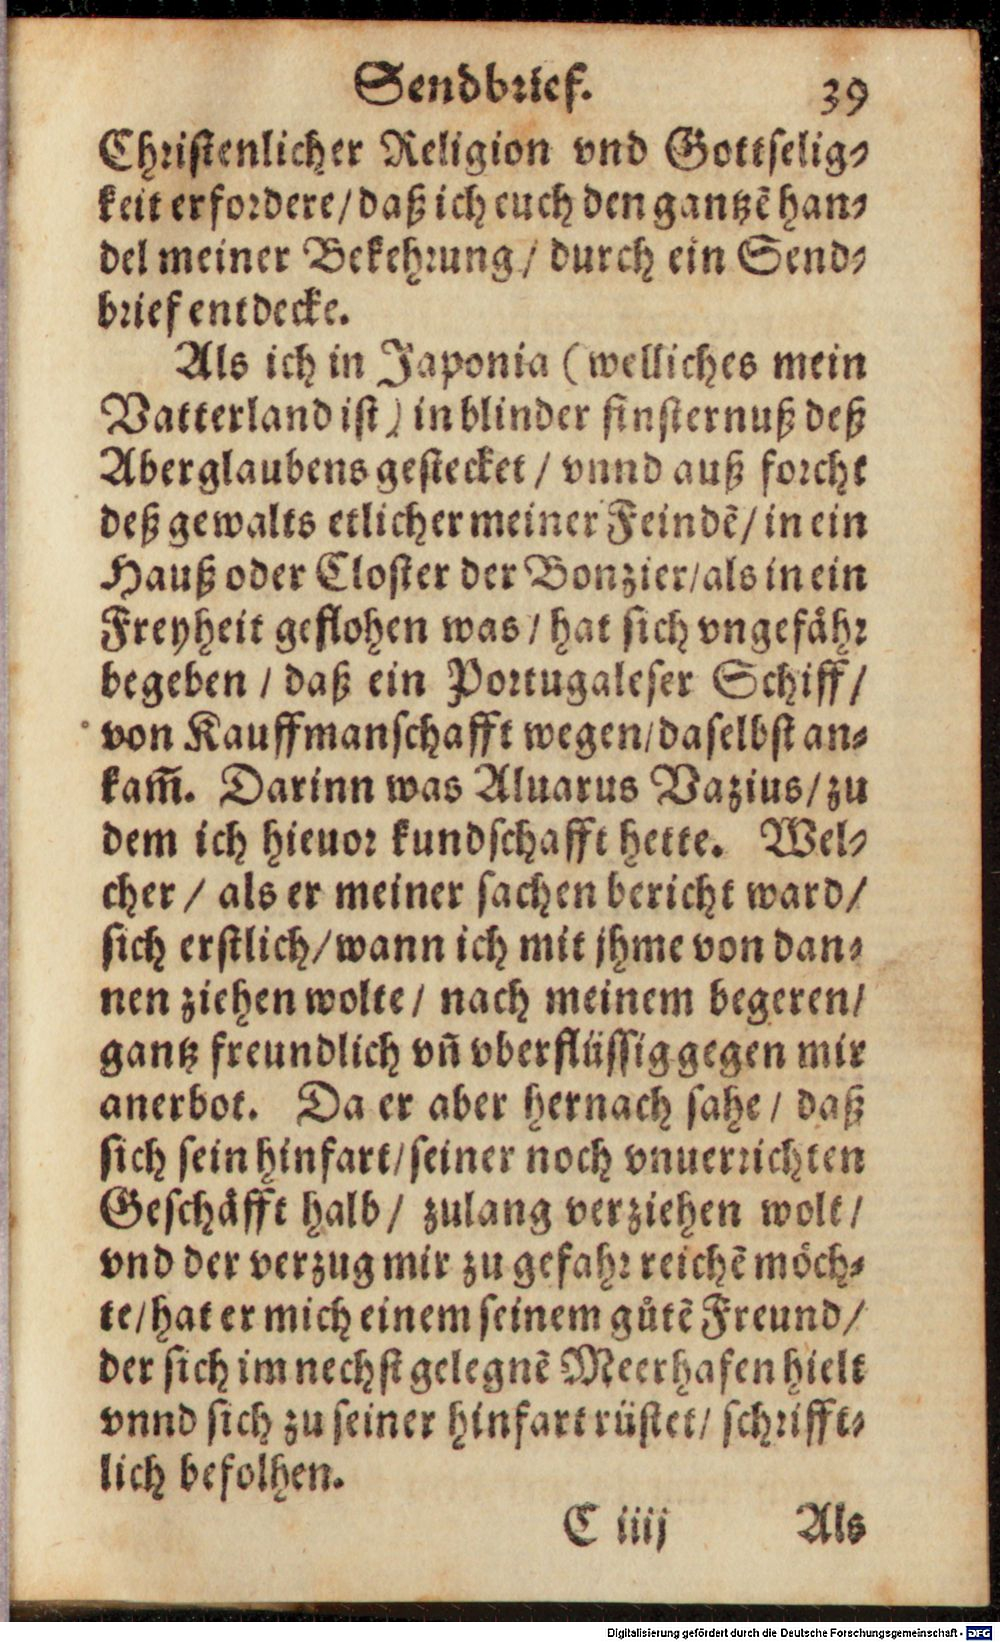 Sendbrief. 39
Christenlicher Religion vnd Gottselig-
keit erfordere/ daß ich euch den gantzẽ han-
del meiner Bekehrung/ durch ein Send-
brief entdecke.
Als ich in Japonia (welliches mein
Vatterland ist) in blinder finsternuß deß
Aberglaubens gestecket/ vnnd auß forcht
deß gewalts etlicher meiner Feindẽ/ in ein
Hauß oder Closter der Bonzier/ als in ein
Freyheit geflohen was/ hat sich vngefåhr
begeben/ daß ein Portugaleser Schiff/
von Kauffmanschafft wegen/ daselbst an-
kam̃. Darinn was Aluarus Vazius/ zu
dem ich hieuor kundschafft hette. Wel-
cher/ als er meiner sachen bericht ward/
sich erstlich/ wann ich mit jhme von dan-
nen ziehen wolte/ nach meinem begeren/
gantz freundlich vñ vberflüssig gegen mir
anerbot. Da er aber hernach sahe/ daß
sich sein hinfart/ seiner noch vnuerrichten
Geschåfft halb/ zulang verziehen wolt/
vnd der verzug mir zu gefahr reichẽ möch-
te/ hat er mich einem seinem gůtẽ Freund/
der sich im nechst gelegnẽ Meerhafen hielt
vnnd sich zu seiner hinfart rüstet/ schrifft-
lich befolhen.
C iiij Als
Digitalisierung gefördert durch die Deutsche Forschungsgemeinschaft - DFG